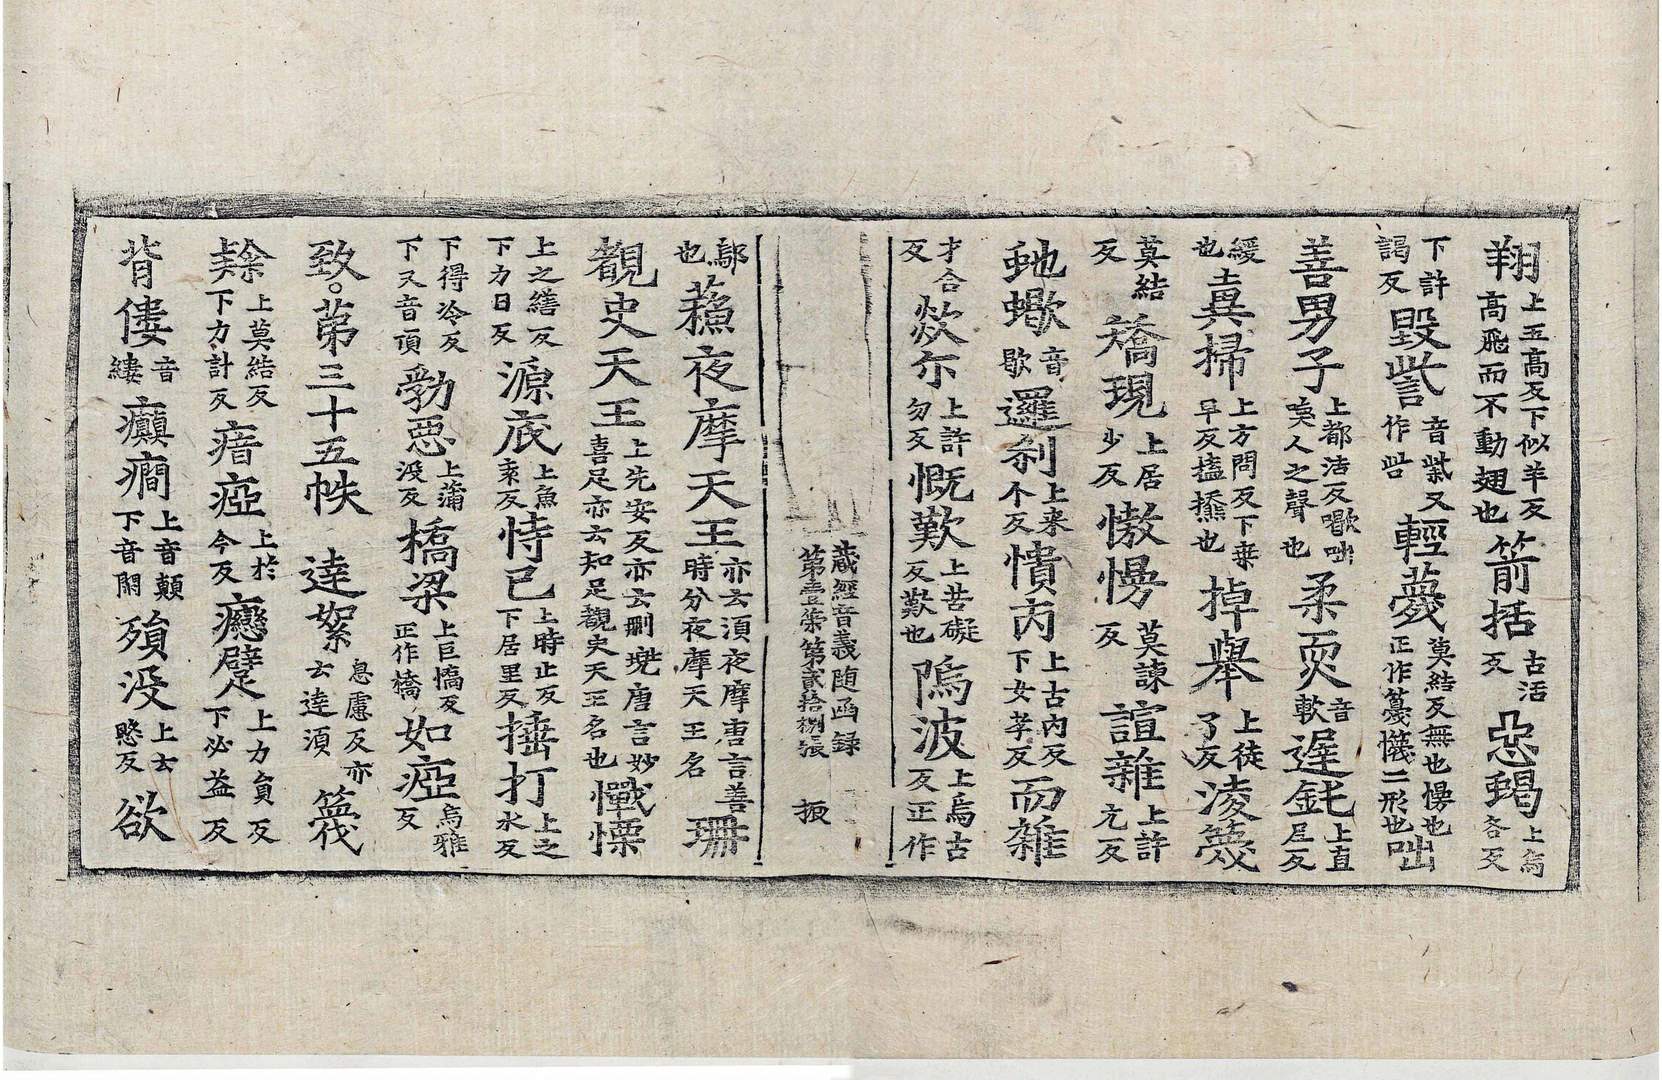 翔上五高反下似羊反高飛而不動翅也箭括古活反惡蝎上烏各反
下許謁反毀訾音紫又作呰輕薎莫結反無也慢也正作蔑懱二形也咄
善男子上都活反㘁咄喚人之聲也柔耎音軟遅鈍上直尼反
緩也土異掃上方問反下桒早反搕㩉也掉舉上徒了反淩篾
莫結反矯現上居少反憿慢莫諫反諠雜上許亢反
虵蠍音歇邏剎上来个反憒𠕋上古內反下女孝反而雜
才合反欻尒上許勿反慨歎上苦礙反歎也隖波上烏古反正作
藏經音義随函録第壹䇿第貳拾捌張 振
鄔也蘓夜摩天王亦云須夜摩唐言善時分夜摩天王名珊
覩史天王上先安反亦云刪兠唐言妙喜足亦云知足覩史天王名也懺慄
上之繕反下力日反源底上魚袁反恃已上時止反下居里反捶打上之水反
下得冷反下又音頂勃惡上蒲没反橋梁上巨憍反正作橋如瘂烏雅反
致。苐三十五帙 達絮息慮反亦云達須 筏
𥻘上莫結反下力計反瘖瘂上於今反癵躄上力負反下必益反
背僂音縷癲癇上音顛下音閑殞没上云愍反欲